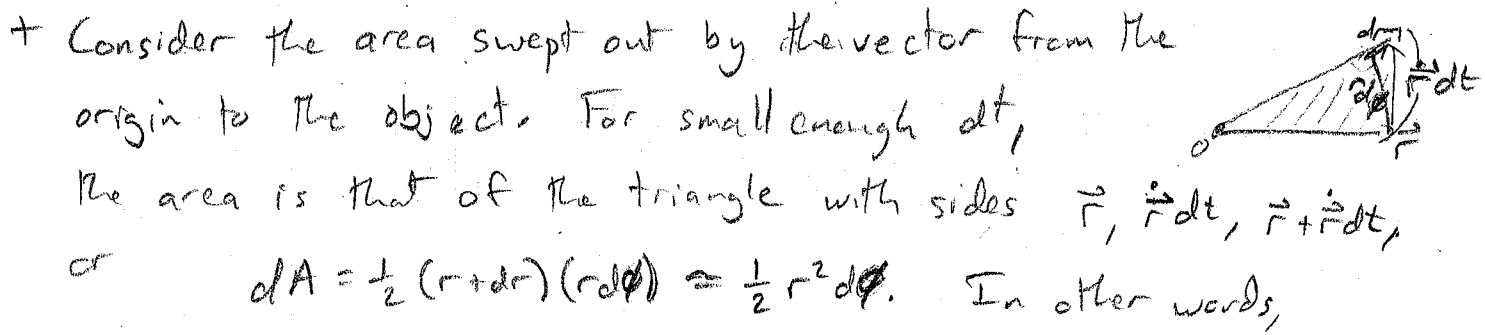 + Consider the area swept out by the vector from the
origin to the object. For small enough dt,
the area is that of the triangle with sides r⃗, ṙ⃗dt, r⃗+ṙ⃗dt,
or dA = ½ (r+dr)(rdϕ) ≃ ½ r²dϕ. In other words,
dr
rdϕ
ṙ⃗dt
O
r⃗